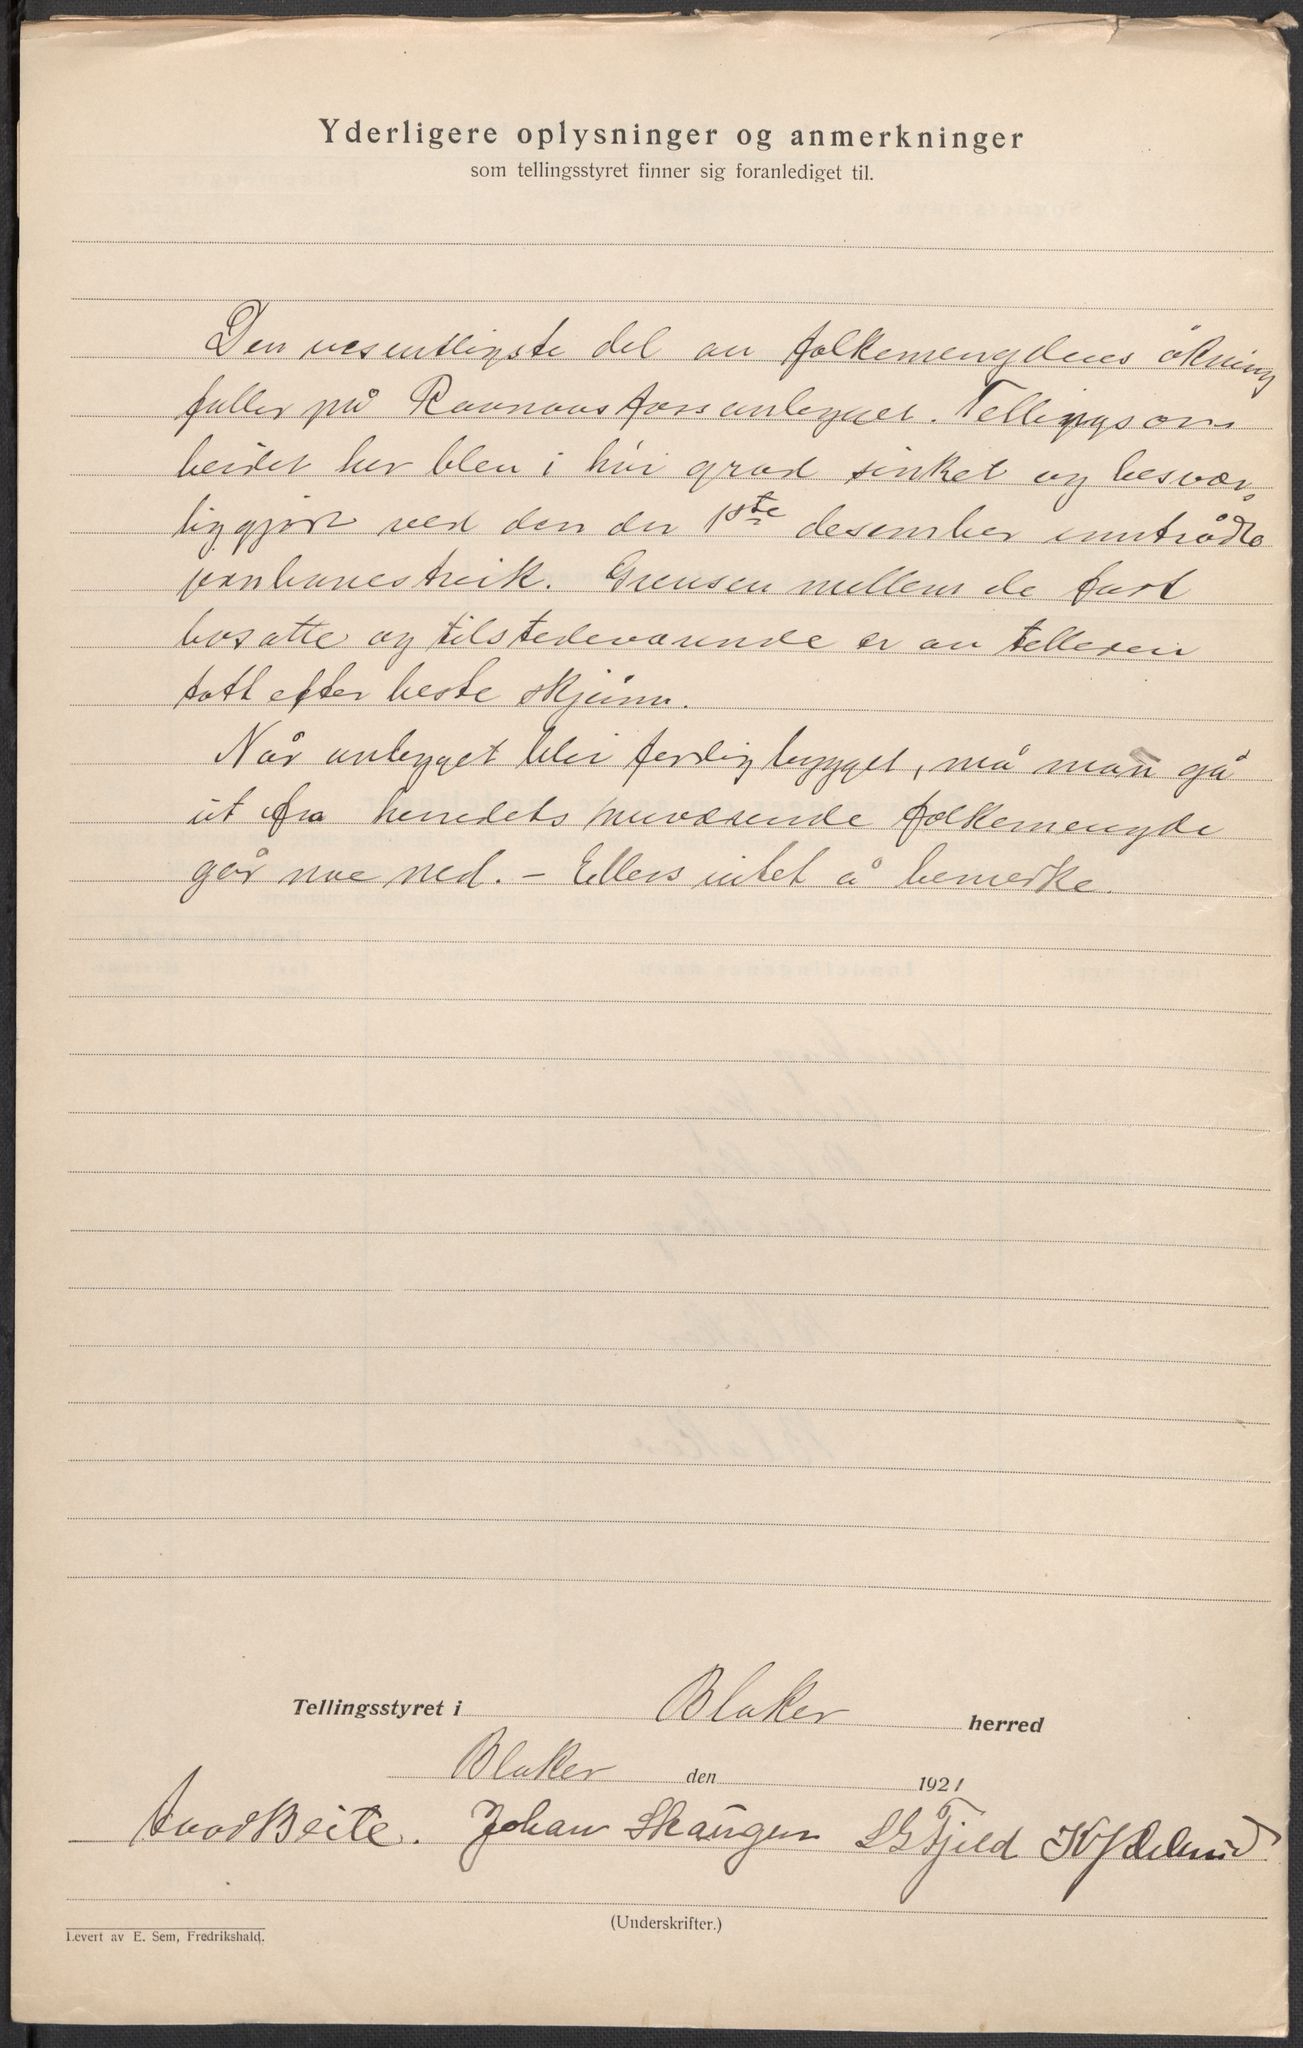 Yderligere oplysninger og anmerkninger
som tellingsstyret finner sig foranlediget til.
Den vesentligste del av folkemengdens økning
faller på Raanaasfossanlegget. Tellingsar-
beidet her blev i høi grad sinket og besvær-
liggjort ved den der 1ste desember inntrådte
jernbanestreik. Grensen mellem de fast
bosatte og tilstedeværende er av telleren
tatt efter beste skjønn.
Når anlegget blir ferdig bygget, må man gå
ut fra herredets nuværende folkemengde
går noe ned. – Ellers intet å bemerke.
Tellingsstyret i Blaker herred
Blaker den 1921
Beite. Johan Skaugen S G Fjeld
(Underskrifter.)
Levert av E. Sem, Fredrikshald.